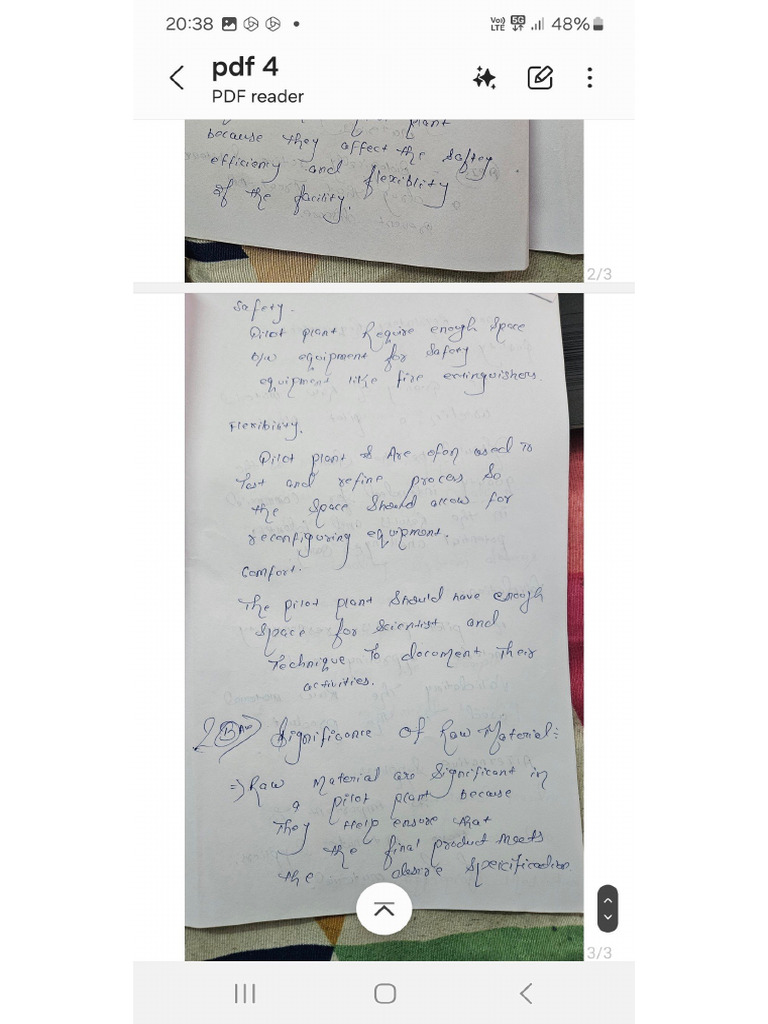 20:38 Vo)) LTE 5G 48%
pdf 4
PDF reader
plant
because they affect the saftey
efficiency and flexiblity
of the facility.
2/3
Safety.
Pilot plant Require enough Space
b/w equipment for Safety
equipment like fire extinguishers.
Flexibility.
Pilot plant & Are ofen used to
Test and refine process So
the Space Should allow for
reconfiguring equipment.
Comfort.
The pilot plant Should have enough
Space for Scientist and
Technique To document Their
activities.
Significance Of Raw Material:
⇒ Raw Material are Significant in
a pilot plant Because
They Help ensure that
the final product meets
the desire Speicification
3/3